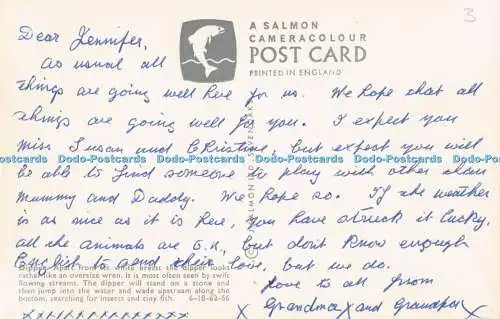 3
A SALMON
CAMERACOLOUR
POST CARD
PRINTED IN ENGLAND
Dear Jennifer,
As usual all
things are going well here for us. We hope that all
things are going well for you. I expect you
Miss Susan and Christine, but expect you will
Dodo-Postcards Dodo-Postcards Dodo-Postcards Dodo-Postcards Dodo-Postcards
be able to find someone to play with other than
Mummy and Daddy. We hope so. If the weather
is as nice as it is here, you have struck it lucky,
all the animals are O.K., but don't know enough
English to send their love, but we do.
Love to all from
Grandma x and Grandpa x
Dipper. Apart from its white breast the dipper looks
rather like an oversize wren. It is most often seen by swift
flowing streams. The dipper will stand on a stone and
then jump into the water and wade upstream along the
bottom, searching for insects and tiny fish. 6-18-02-56
x x x x x x x x x x x x
x x